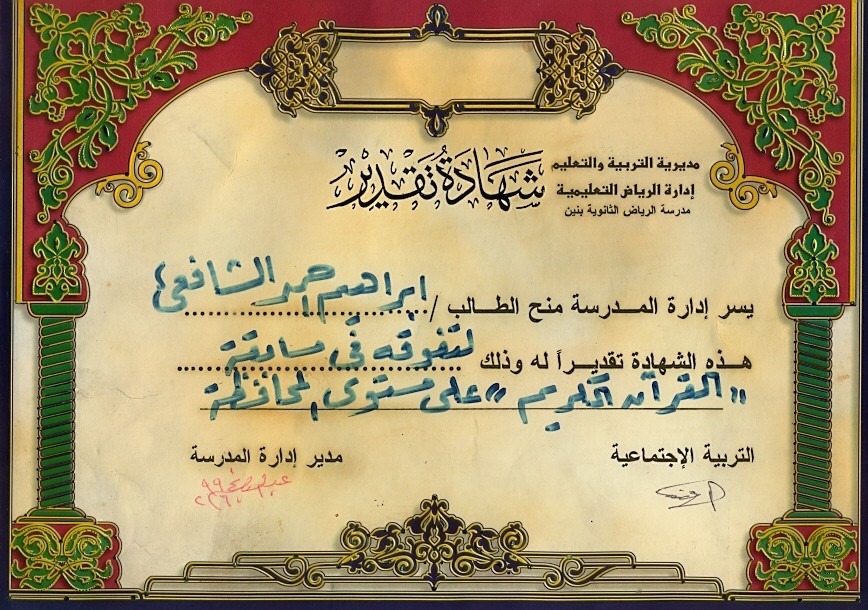 مديرية التربية والتعليم
إدارة الرياض التعليمية
مدرسة الرياض الثانوية بنين
شَهَادَةُ تَقدِير
يسر إدارة المـدرسة منح الطـالب / ابراهيم احمد الشافعى
هـذه الشهادة تقديـراً له وذلك لتفوقه فى مسابقة
"القرآن الكريم" على مستوى المحافظة
التربية الإجتماعية
مدير إدارة المدرسة